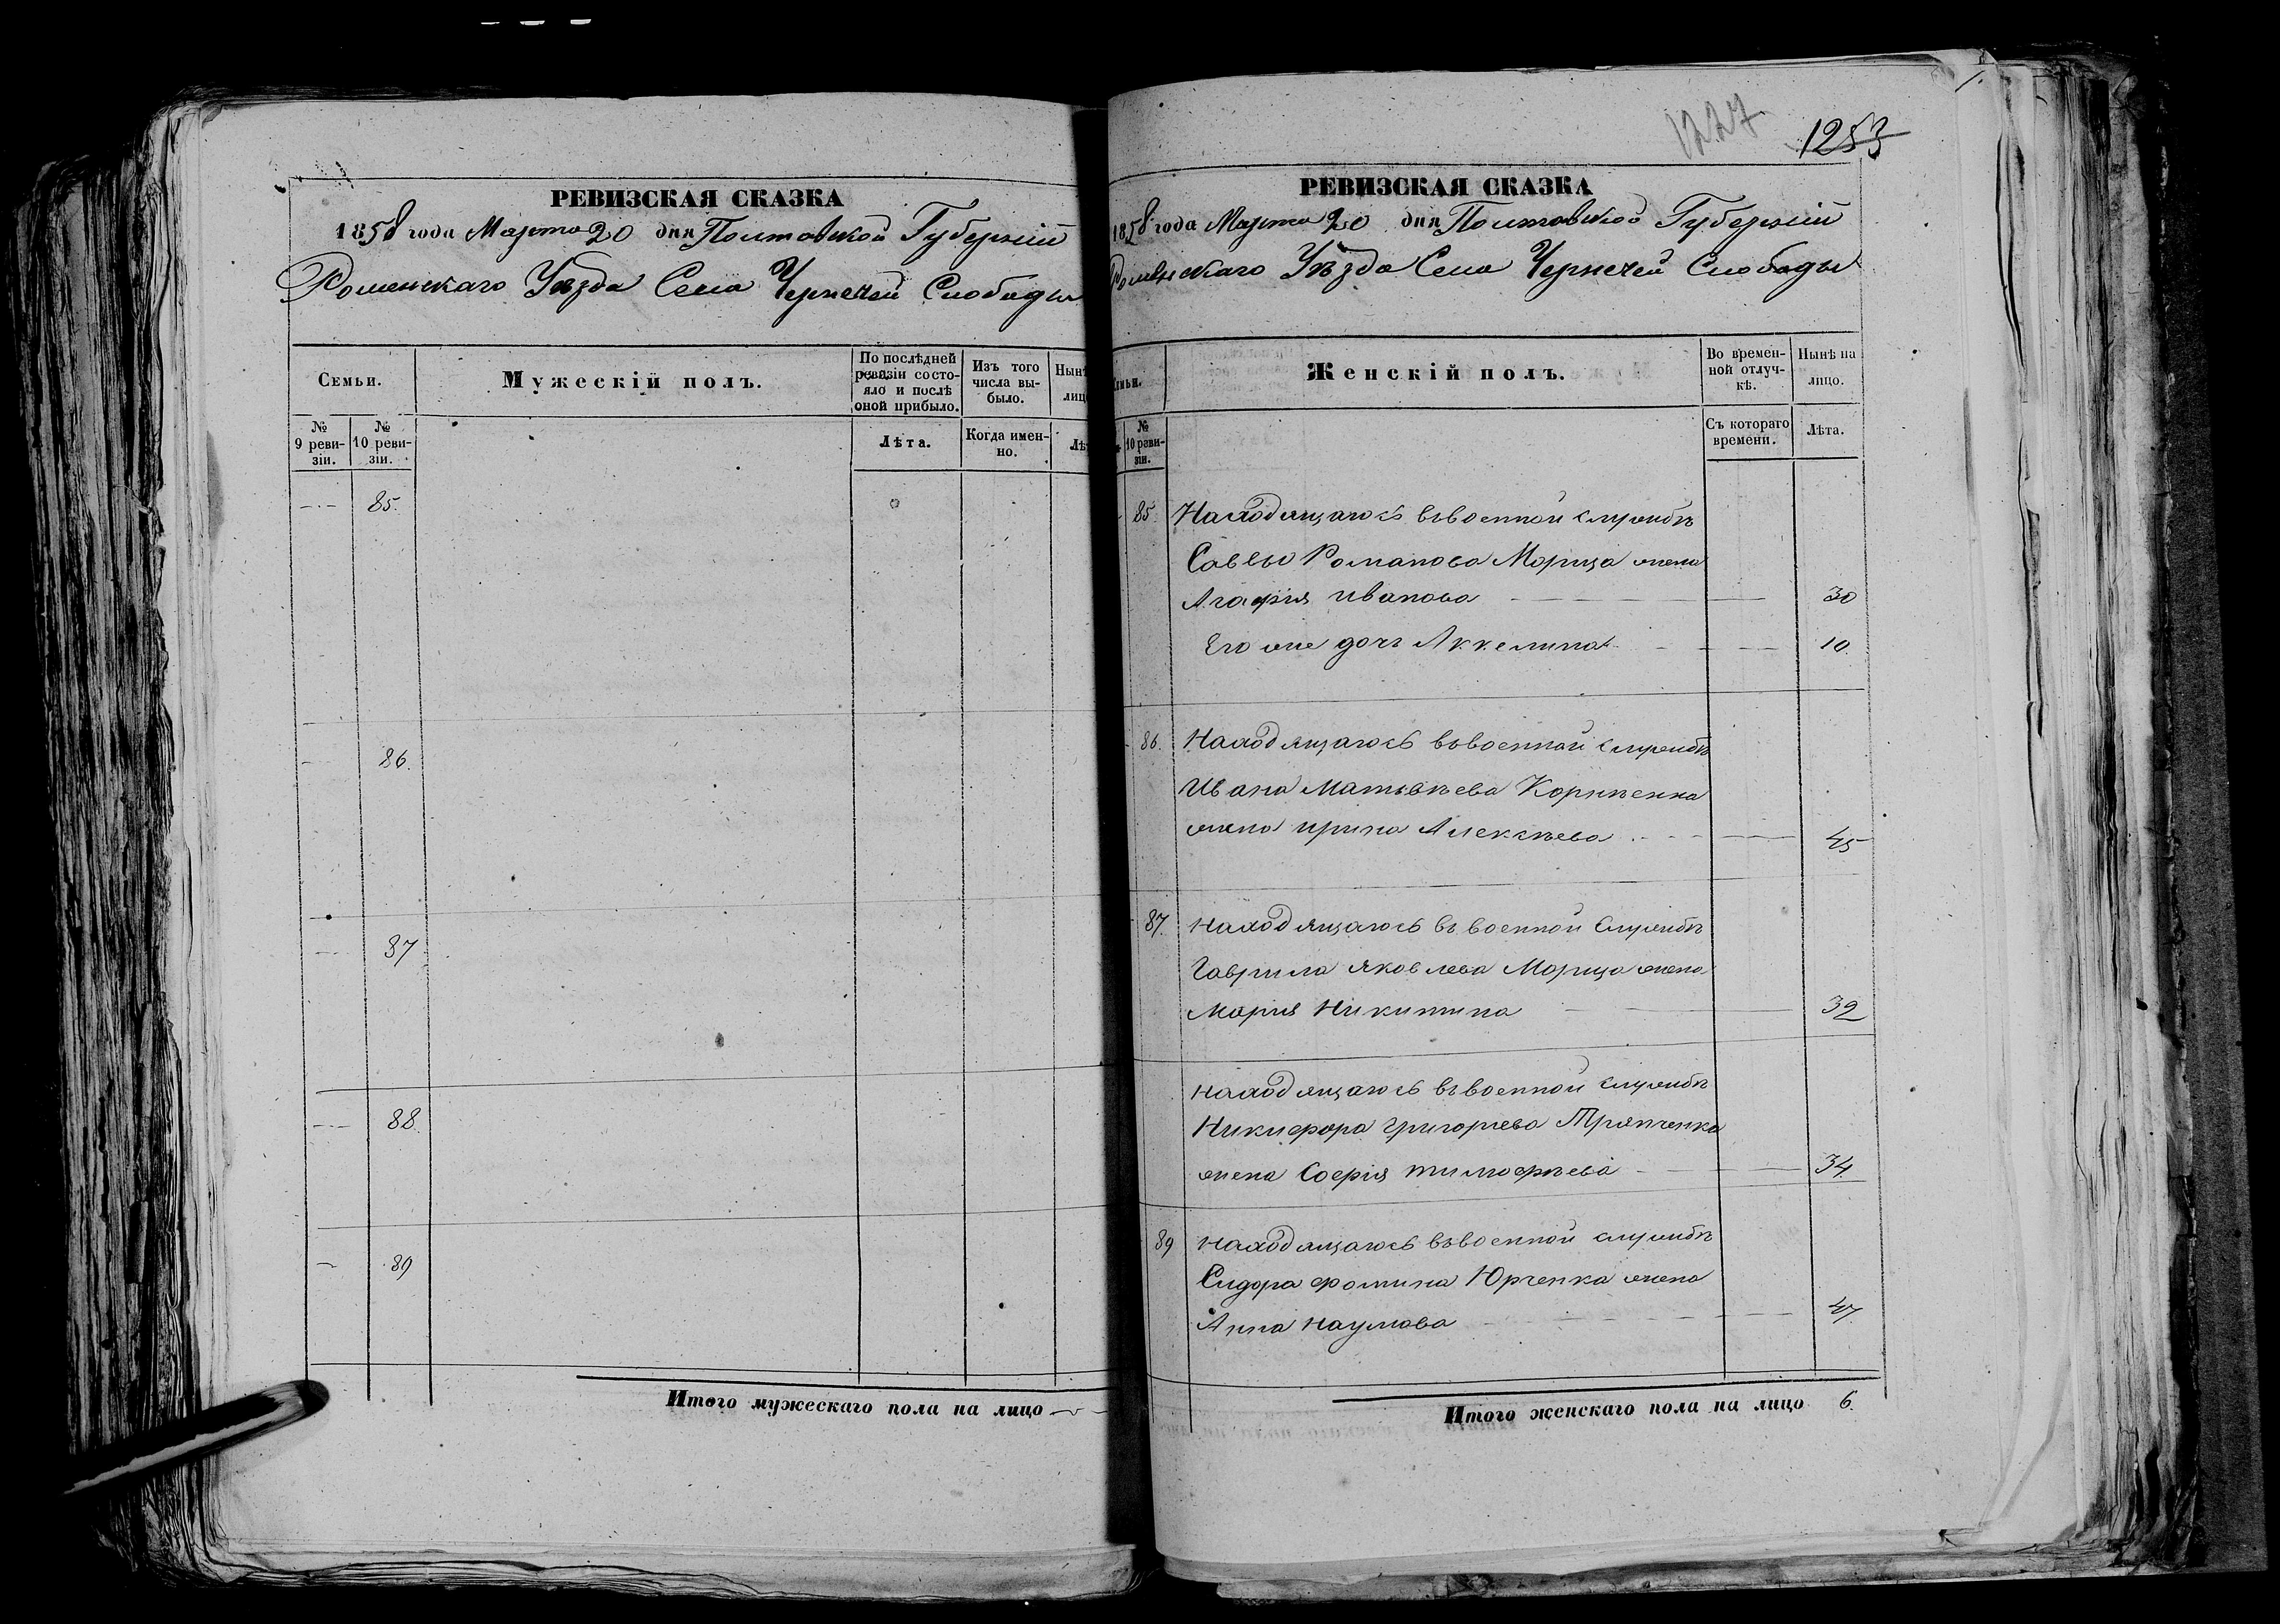 РЕВИЗСКАЯ СКАЗКА
1858 года Марта 20 дня Полтавской Губерніи
Роменскаго Уѣзда Села Чернечей Слободы
Семьи.
Мужескій полъ.
По послѣдней ревизіи состояло и послѣ оной прибыло.
Изъ того числа выбыло.
№ 9 ревизіи.
№ 10 ревизіи.
Лѣта.
Когда именно.
85.
86.
87
88.
89
Итого мужескаго пола на лицо
1227
1253
РЕВИЗСКАЯ СКАЗКА
1858 года Марта 20 дня Полтавской Губерніи
Роменскаго Уѣзда Села Чернечей Слободы
Женскій полъ.
Во временной отлучкѣ.
Нынѣ на лицо.
№ 10 ревизіи.
Съ котораго времени.
Лѣта.
85. Находящагось въ военной службѣ
Саввы Романова Морица жена
Агафія Иванова 30
Его же дочь Аккелина 10.
86. Находящагось въ военной службѣ
Ивана Матвѣева Корнѣенка
жена Ирина Алексѣева 45
87. Находящагось въ военной службѣ
Гаврила Яковлева Морица жена
Марія Никитина 39
Находящагось въ военной службѣ
Никифора Григорьева Тряпченка
жена Софія Тимофѣева 34.
89 Находящагось въ военной службѣ
Сидора Фомина Юрченка жена
Анна Наумова 47
Итого женскаго пола на лицо 6.